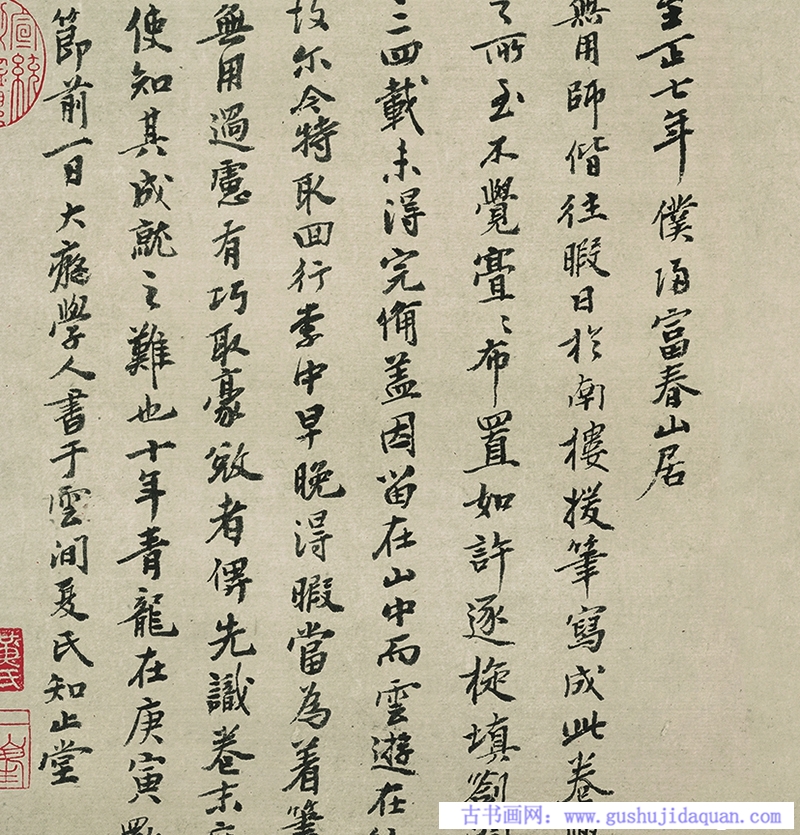 至正七年僕歸富春山居
無用師偕往暇日於南樓援筆寫成此卷
之所至不覺亹〻布置如許逐旋填劄
三四載未得完備盖因留在山中而雲遊在
故尔今特取回行李中早晚得暇當為着筆
無用過慮有巧取豪敓者俾先識卷末
使知其成就之難也十年青龍在庚寅歜
節前一日大癡學人書于雲間夏氏知止堂
宣統
黃氏
古书画网：www.gushujidaquan.com